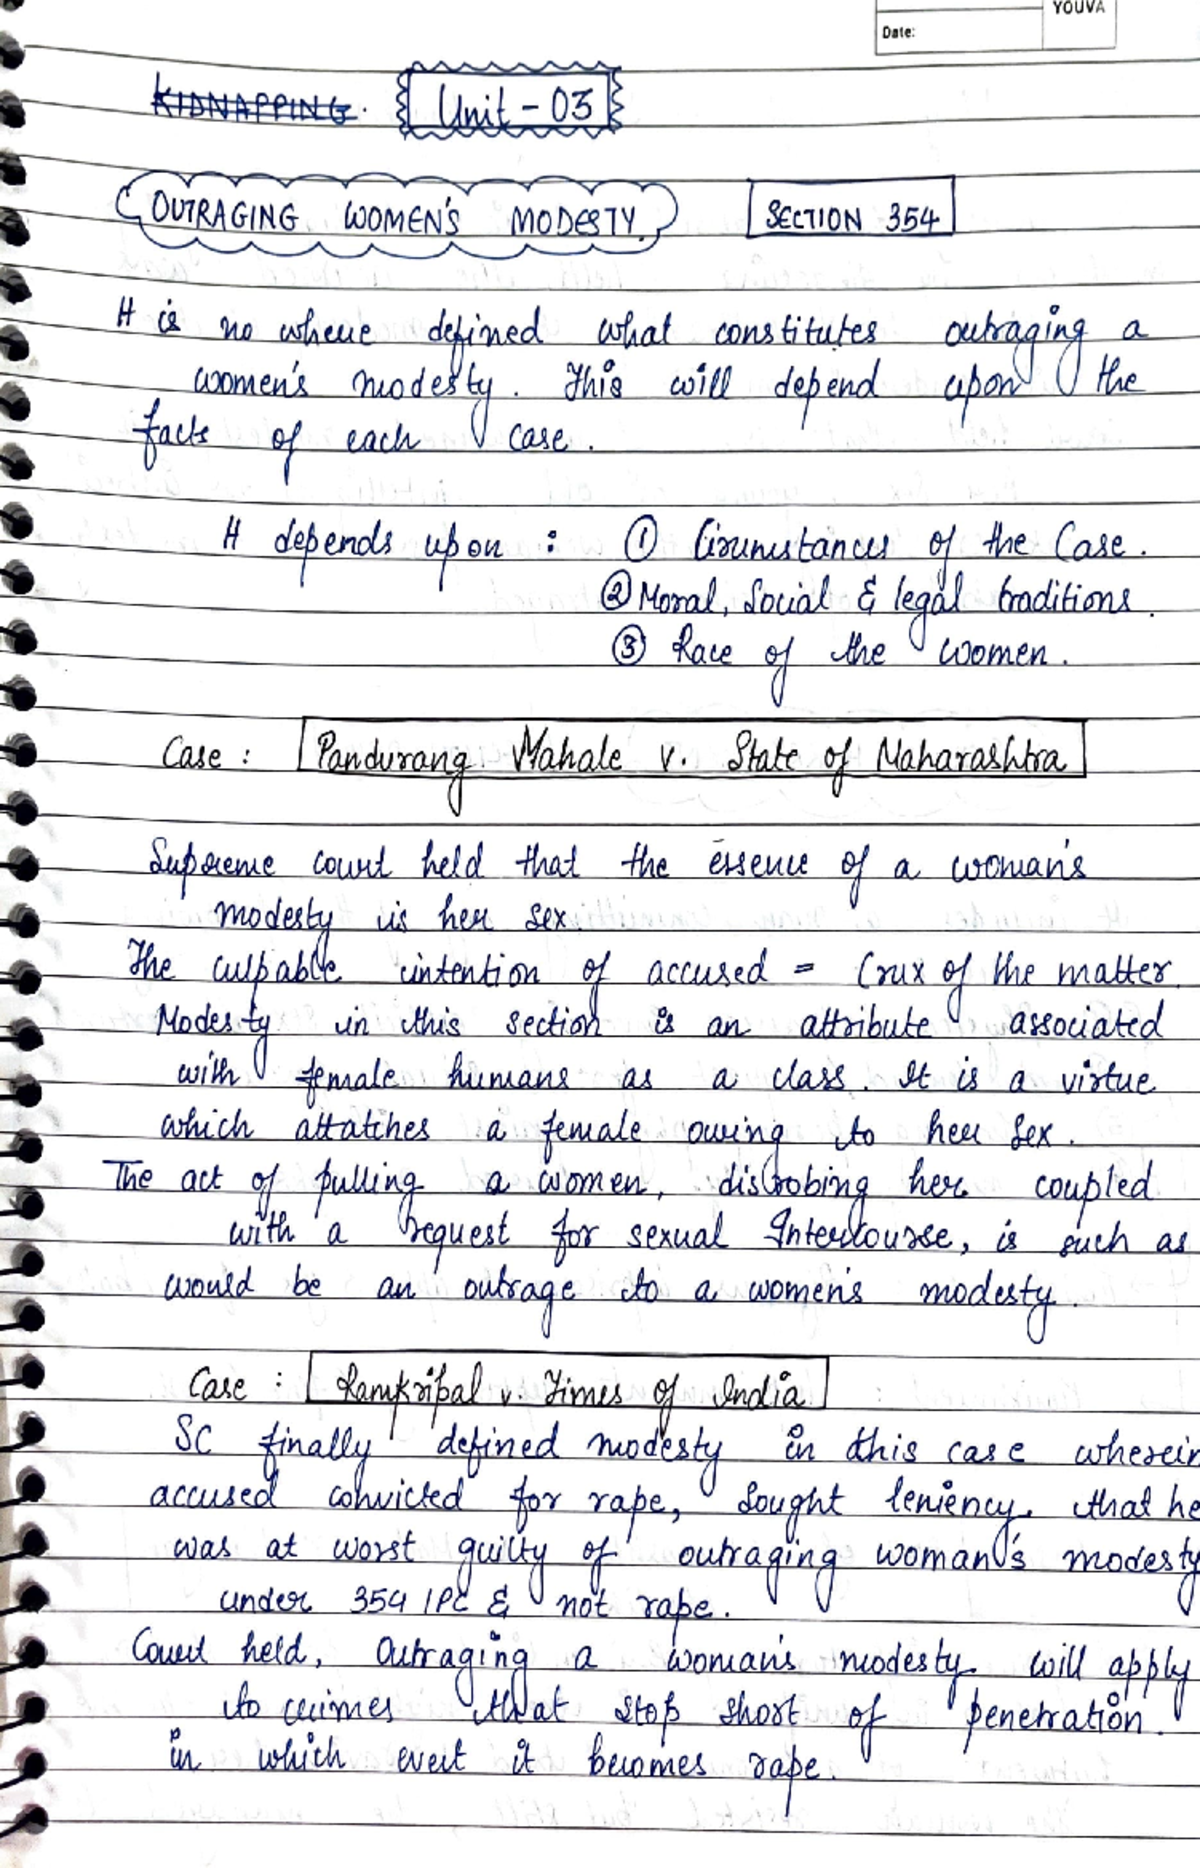 YOUVA
Date:
KIDNAPPING. Unit - 03
OUTRAGING WOMEN'S MODESTY. SECTION 354
It is no where defined what constitutes outraging a
women's modesty. This will depend upon the
facts of each case.
It depends upon : ① Circumstances of the Case.
② Moral, Social & legal traditions.
③ Race of the women.
Case : Pandurang Mahale v. State of Maharashtra
Supreme court held that the essence of a woman's
modesty is her sex.
The culpable intention of accused = Crux of the matter.
Modesty in this section is an attribute associated
with female humans as a class. It is a virtue
which attatches a female owing to her sex.
The act of pulling a women, disrobing her coupled
with a request for sexual Intercourse, is such as
would be an outrage to a women's modesty.
Case : Ramkripal v. Times of India
SC finally defined modesty in this case wherein
accused convicted for rape, sought leniency that he
was at worst guilty of outraging woman's modesty
under 354 IPC & not rape.
Court held, Outraging a woman's modesty will apply
to crimes that stop short of penetration.
in which event it becomes rape.